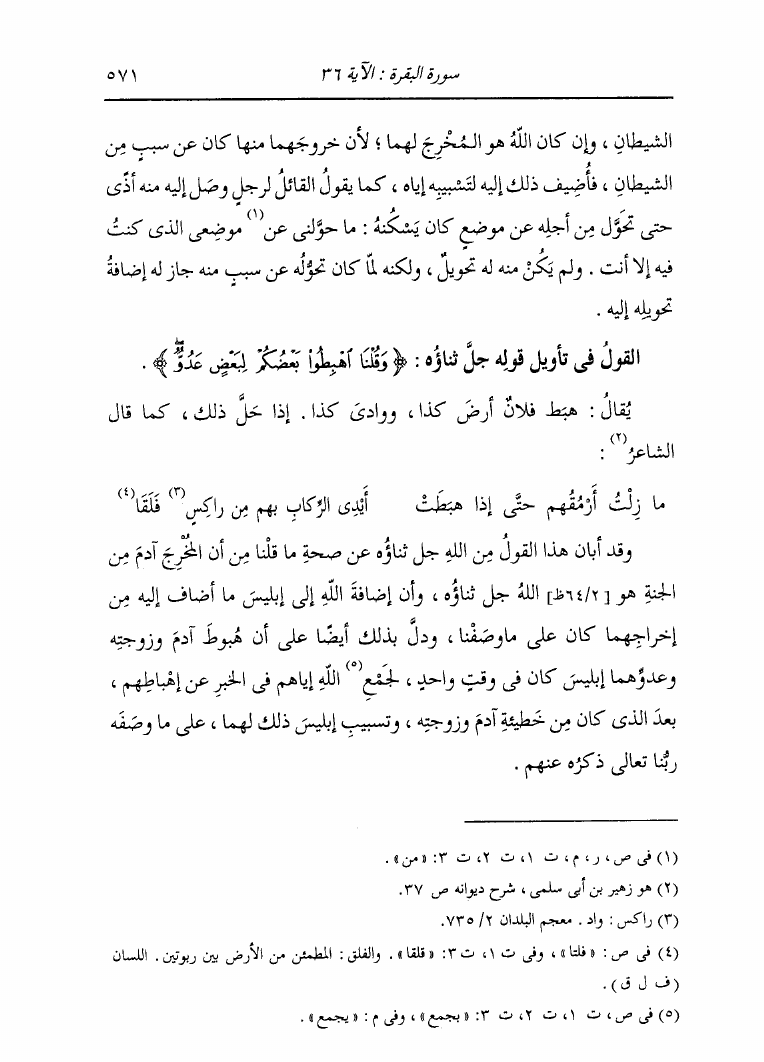 سورة البقرة : الآية ٣٦ ٥٧١
الشيطانِ ، وإن كان اللَّهُ هو المُخْرِجَ لهما ؛ لأن خروجَهما منها كان عن سببٍ مِن
الشيطانِ ، فأُضِيف ذلك إليه لتَسْبيبِه إياه ، كما يقولُ القائلُ لرجلٍ وصَل إليه منه أذًى
حتى تحَوَّل مِن أجلِه عن موضعٍ كان يَسْكُنهُ : ما حوَّلنى عن(١) موضعى الذى كنتُ
فيه إلا أنت . ولم يَكُنْ منه له تحويلٌ ، ولكنه لمَّا كان تحوُّلُه عن سببٍ منه جاز له إضافةُ
تحويلِه إليه .
القولُ فى تأويل قولِه جلَّ ثناؤُه : ﴿ وَقُلْنَا ٱهْبِطُوا۟ بَعْضُكُمْ لِبَعْضٍ عَدُوٌّ ۖ ﴾ .
يُقالُ : هبَط فلانٌ أرضَ كذا ، ووادىَ كذا . إذا حَلَّ ذلك ، كما قال
الشاعرُ(٢) :
ما زِلْتُ أَرْمُقُهم حتَّى إذا هبَطَتْ أَيْدِى الرِّكابِ بهم مِن راكِسٍ(٣) فَلَقَا(٤)
وقد أبان هذا القولُ مِن اللهِ جل ثناؤُه عن صحةِ ما قلْنا مِن أن المُخْرِجَ آدمَ مِن
الجنةِ هو [٦٤/٢ظ] اللهُ جل ثناؤُه ، وأن إضافةَ اللَّهِ إلى إبليسَ ما أضاف إليه مِن
إخراجِهما كان على ماوصَفْنا ، ودلَّ بذلك أيضًا على أن هُبوطَ آدمَ وزوجتِه
وعدوِّهما إبليسَ كان فى وقتٍ واحدٍ ، لجَمْعِ(٥) اللَّهِ إياهم فى الخبرِ عن إهْباطِهم ،
بعدَ الذى كان مِن خَطيئةِ آدمَ وزوجتِه ، وتسبيبِ إبليسَ ذلك لهما ، على ما وصَفَه
ربُّنا تعالى ذكرُه عنهم .
(١) فى ص ، ر ، م ، ت ١ ، ت ٢ ، ت ٣ : « من » .
(٢) هو زهير بن أبى سلمى ، شرح ديوانه ص ٣٧.
(٣) راكس : واد . معجم البلدان ٢/ ٧٣٥.
(٤) فى ص : « فلتا » ، وفى ت ١ ، ت ٣ : « قلقا » . والفلق : المطمئن من الأرض بين ربوتين . اللسان
(ف ل ق) .
(٥) فى ص ، ت ١ ، ت ٢ ، ت ٣ : « بجمع » ، وفى م : « يجمع » .